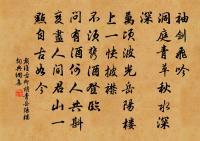 袖劍飛吟
洞庭青草秋水深
深
萬頃波光岳陽樓
上一快披襟
不須攜酒登臨
問有酒何人共斟
變盡人間君山一
點自古如今
戴復古柳梢青岳陽樓